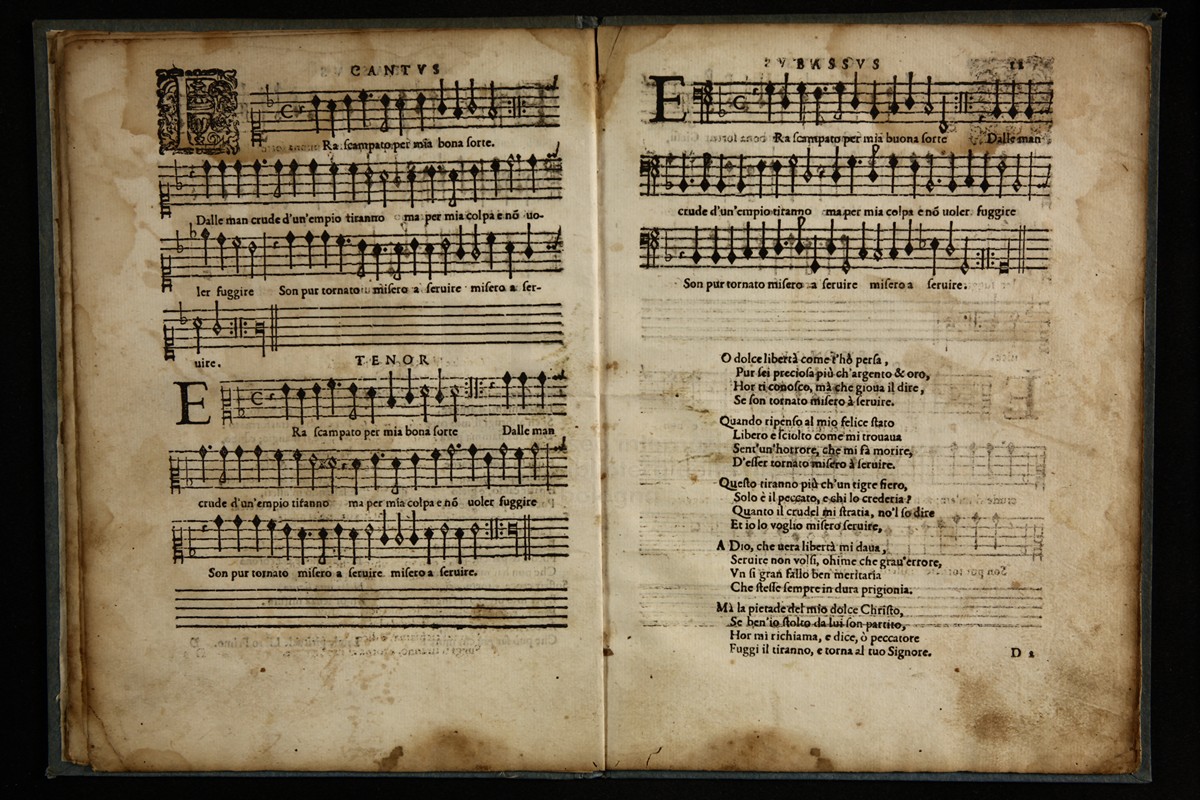 CANTVS
E
Ra scampato per mia bona sorte.
Dalle man crude d'un'empio tiranno ma per mia colpa e nõ uo-
ler fuggire Son pur tornato misero a seruire misero a ser-
uire.
TENOR
E
Ra scampato per mia bona sorte Dalle man
crude d'un'empio tiranno ma per mia colpa e nõ uoler fuggire
Son pur tornato misero a seruire misero a seruire.
BASSVS
E
Ra scampato per mia buona sorte Dalle man
crude d'un'empio tiranno ma per mia colpa e nõ uoler fuggire
Son pur tornato misero a seruire misero a seruire.
O dolce libertà come t'hò persa,
Pur sei preciosa più ch'argento & oro,
Hor ti conosco, mà che gioua il dire,
Se son tornato misero à seruire.
Quando ripenso al mio felice stato
Libero e sciolto come mi trouaua
Sent'un'horrore, che mi fà morire,
D'esser tornato misero à seruire.
Questo tiranno più ch'un tigre fiero,
Solo è il peccato, e chi lo crederia?
Quanto il crudel mi stratia, no'l so dire
Et io lo voglio misero seruire,
A Dio, che uera libertà mi daua,
Seruire non volsi, ohime che grau'errore,
Vn si gran fallo ben meritaria
Che stesse sempre in dura prigionia.
Mà la pietade del mio dolce Christo,
Se ben'io stolto da lui son partito,
Hor mi richiama, e dice, ò peccatore
Fuggi il tiranno, e torna al tuo Signore.
D 2